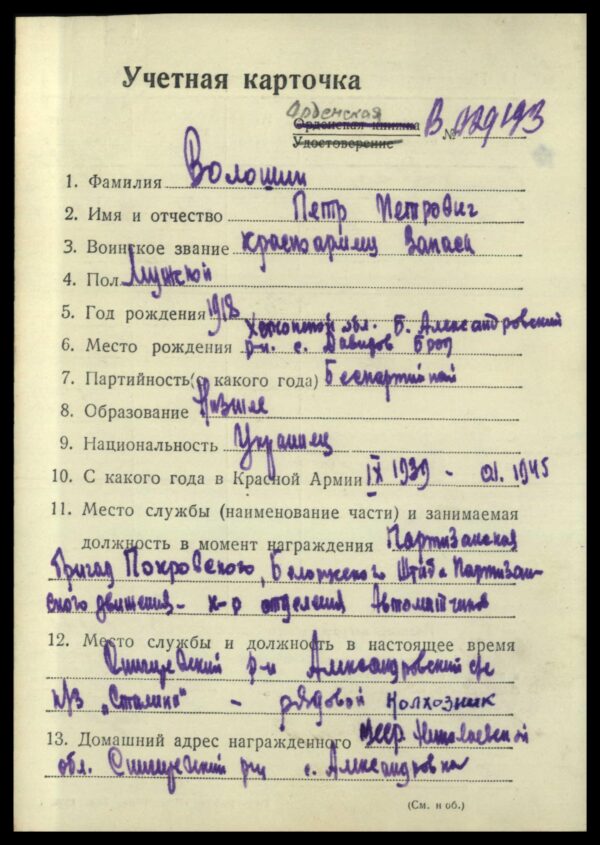 Учетная карточка
Орденская
Орденская книжка В №929193
Удостоверение
1. Фамилия Волошин
2. Имя и отчество Петр Петрович
3. Воинское звание Красноармеец запаса
4. Пол Мужской
5. Год рождения 1918
Херсонской обл. Б. Александровский
6. Место рождения р-н. с. Давидов Брод
7. Партийность(с какого года) Беспартийный
8. Образование Низшее
9. Национальность Украинец
10. С какого года в Красной Армии IX 1939 - 01. 1945
11. Место службы (наименование части) и занимаемая
должность в момент награждения Партизанская
бригад Покровского, Штаб Партизан-
ского движения - к-р отделения Автоматчиков
12. Место службы и должность в настоящее время
р-н Александровский с/с
к/з „Сталина" - рядовой колхозник
13. Домашний адрес награжденного УССР Николаевской
обл. р-н с. Александровка
(См. н об.)